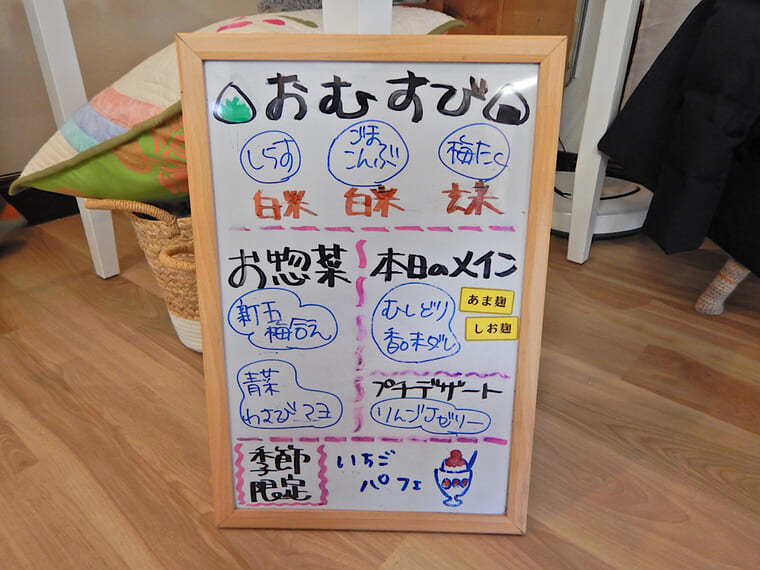 おむすび
しらす
ごま
こんぶ
梅たく
白米
白米
玄米
お惣菜
新玉
梅和え
青菜
わさびマヨ
本日のメイン
むしどり
香味ダレ
あま麹
しお麹
プチデザート
りんごJゼリー
季節
限定
いちご
パフェ